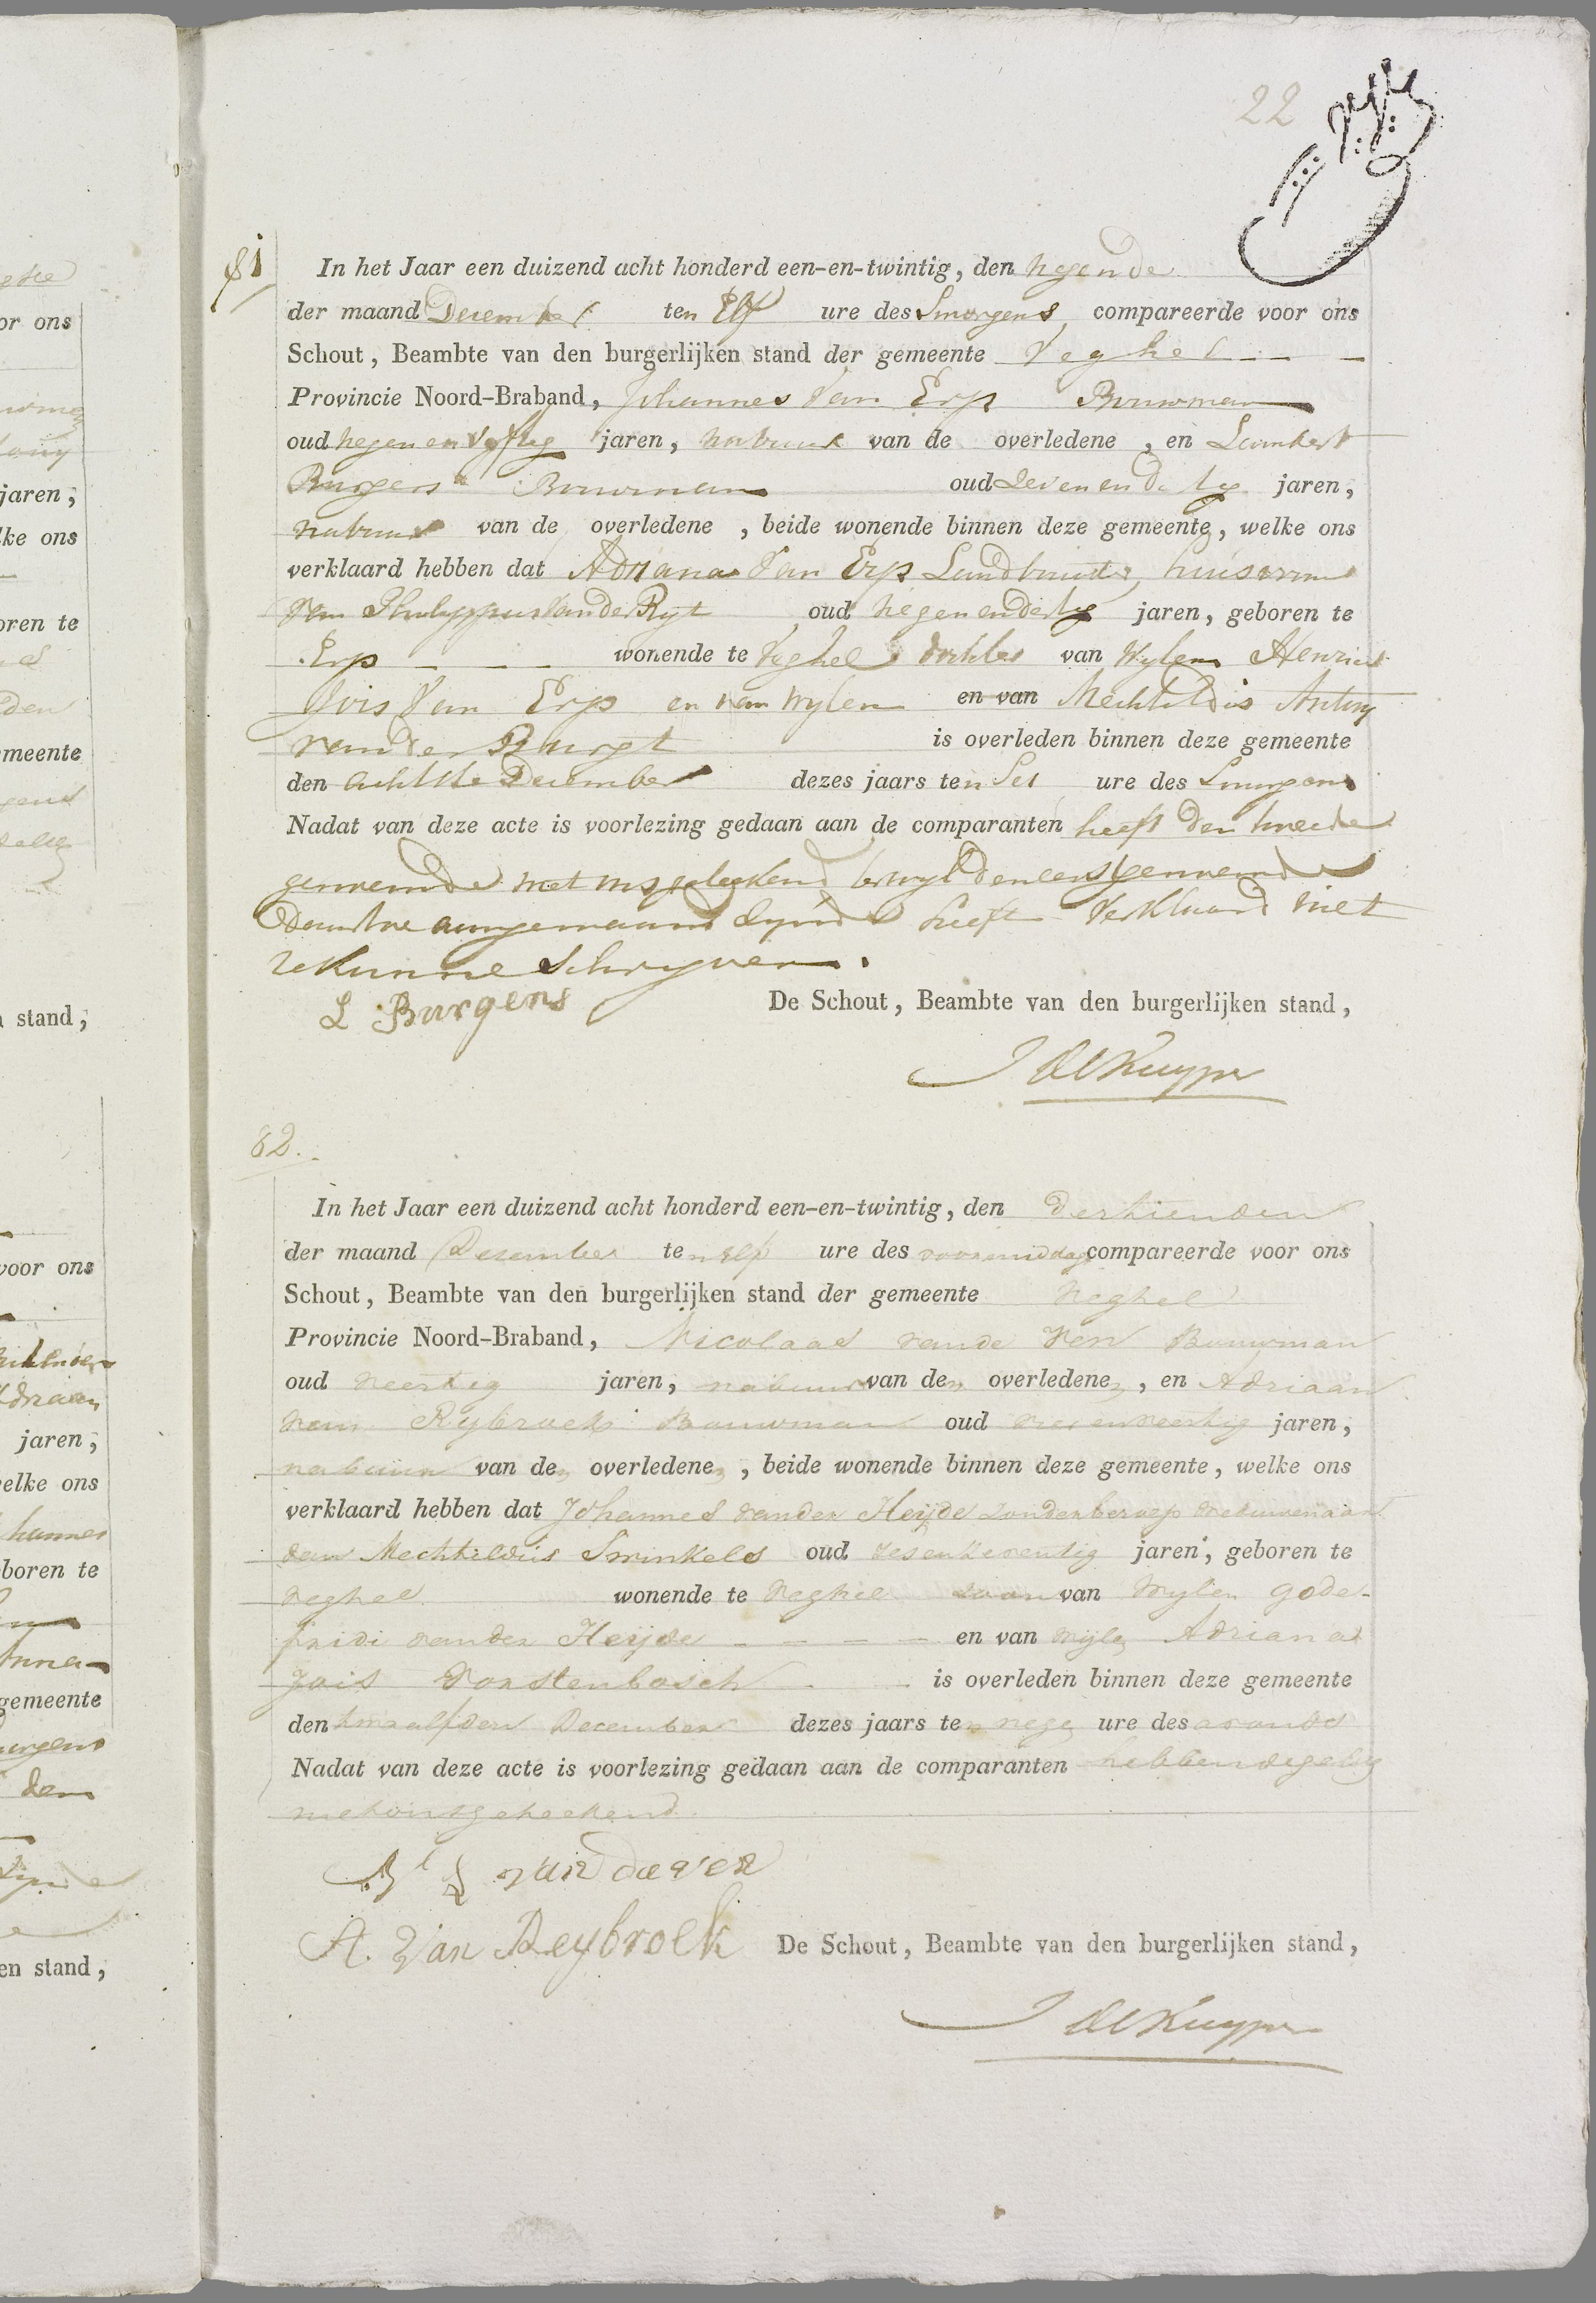 22
81
In het Jaar een duizend acht honderd een-en-twintig, den negende
der maand December ten Elf ure des Smorgens compareerde voor ons
Schout, Beambte van den burgerlijken stand der gemeente Veghel
Provincie Noord-Braband, Johannes Van Erp Bouwman
oud negen en vyftig jaren, nabuur van de overledene, en Lambert
Burgers Bouwman oud Seven en dertig jaren,
nabuur van de overledene, beide wonende binnen deze gemeente, welke ons
verklaard hebben dat Adriana Van Erp Landbouwster, huisvrouw
van Philippus Van de Ryt oud negen en dertig jaren, geboren te
Erp wonende te Veghel dochter van Wylen Henricus
Jvis Van Erp en van wylen en van Mechteldis Antony
van der Burgt is overleden binnen deze gemeente
den achtste December dezes jaars ten Ses ure des Smorgens
Nadat van deze acte is voorlezing gedaan aan de comparanten heeft den tweede
genoemde met ons geteekend terwyl den eerstgenoemde
daartoe aangemaand Zynde heeft Verklaard niet
te kunne Schryven.
L Burgens
De Schout, Beambte van den burgerlijken stand,
J De Kuyper
82.
In het Jaar een duizend acht honderd een-en-twintig, den dertienden
der maand December ten elf ure des voormiddags compareerde voor ons
Schout, Beambte van den burgerlijken stand der gemeente Veghel
Provincie Noord-Braband, Nicolaas vande Ven Bouwman
oud veertig jaren, nabuur van den overledenen, en Adriaan
van Rybroek Bouwman oud vier en veertig jaren,
nabuur van den overledenen, beide wonende binnen deze gemeente, welke ons
verklaard hebben dat Johannes vander Heijde zonder beroep weduwenaar
van Mechteldis Swinkels oud zes en zeventig jaren, geboren te
Veghel wonende te Veghel zoon van Wylen Gode-
fridi vander Heijde en van wijlen Adriana
Jois Vorstenbosch is overleden binnen deze gemeente
den twaalfden December dezes jaars ten nege ure des avonds
Nadat van deze acte is voorlezing gedaan aan de comparanten hebben
met ons geteekend.
A. Van Reybroek
De Schout, Beambte van den burgerlijken stand,
J De Kuyper
or ons
jaren,
lke ons
oren te
meente
stand,
voor ons
jaren,
elke ons
boren te
gemeente
en stand,